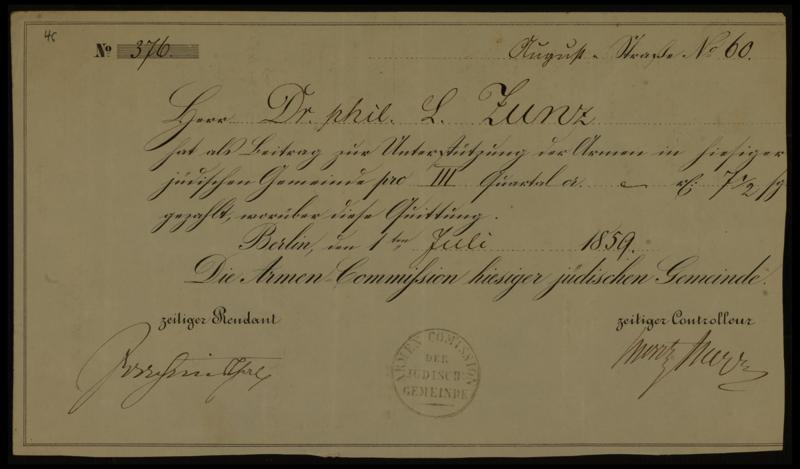 46
No 376.
August-Straße No 60.
Herr Dr. phil. L. Zunz
hat als Beitrag zur Unterstützung der Armen in hiesiger
jüdischen Gemeinde pro III Quartal cr. – rt: 7 1/2 sg
gezahlt, worüber diese Quittung.
Berlin, den 1ten Juli 1859.
Die Armen-Commission hiesiger jüdischen Gemeinde.
zeitiger Rendant
zeitiger Controlleur
ARMEN COMISSION
DER
JÜDISCH
GEMEINDE